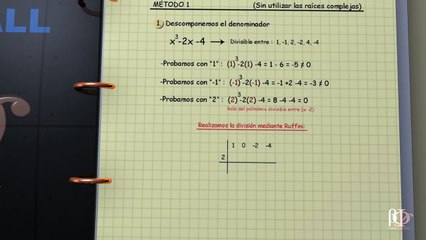 ALL
MÉTODO 1 (Sin utilizar las raíces complejas)
1. Descomponemos el denominador
x³-2x-4 → Divisible entre : 1, -1, 2, -2, 4, -4
-Probamos con "1" : (1)³-2(1)-4 = 1 - 6 = -5 ≠ 0
-Probamos con "-1" : (-1)³-2(-1)-4 = -1 +2 -4 = -3 ≠ 0
-Probamos con "2" : (2)³-2(2)-4 = 8 -4 -4 = 0
Raíz del polinomio divisible entre (x-2)
Realizamos la división mediante Ruffini:
1 0 -2 -4
2